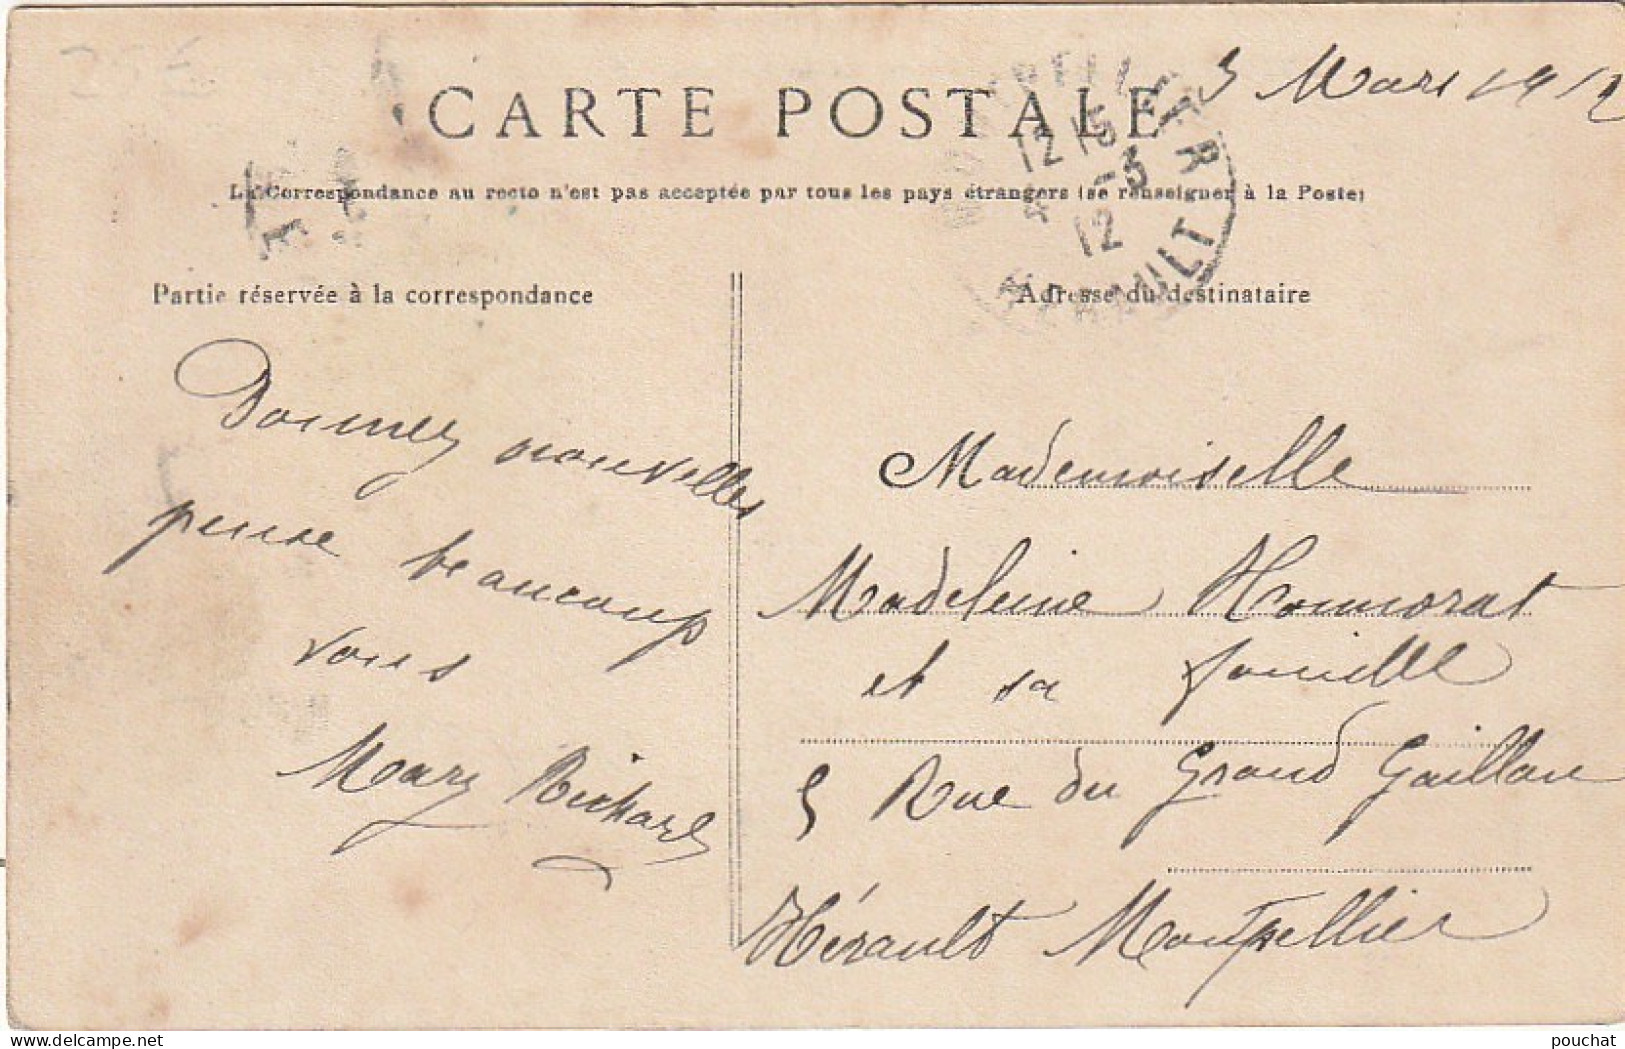 3 Mars 1912
CARTE POSTALE
La Correspondance au recto n'est pas acceptée par tous les pays étrangers (se renseigner à la Poste)
12 15
-3
12
HÉRAULT
Partie réservée à la correspondance
Adresse du destinataire
Donnez nouvelles
pense beaucoup
vous
Mary Richard
Mademoiselle
Madeleine Honnorat
et sa famille
5 Rue du Grand Gaillan
Hérault Montpellier
pouchat